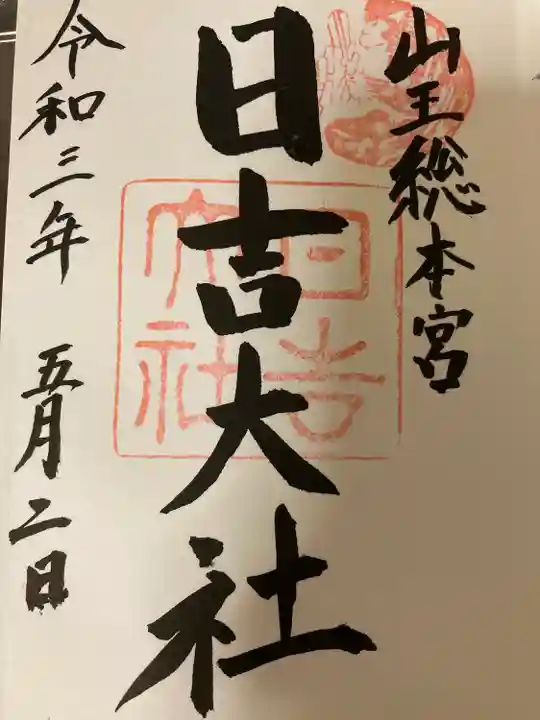 山王総本宮
日吉大社
日吉大社
令和三年 五月二日